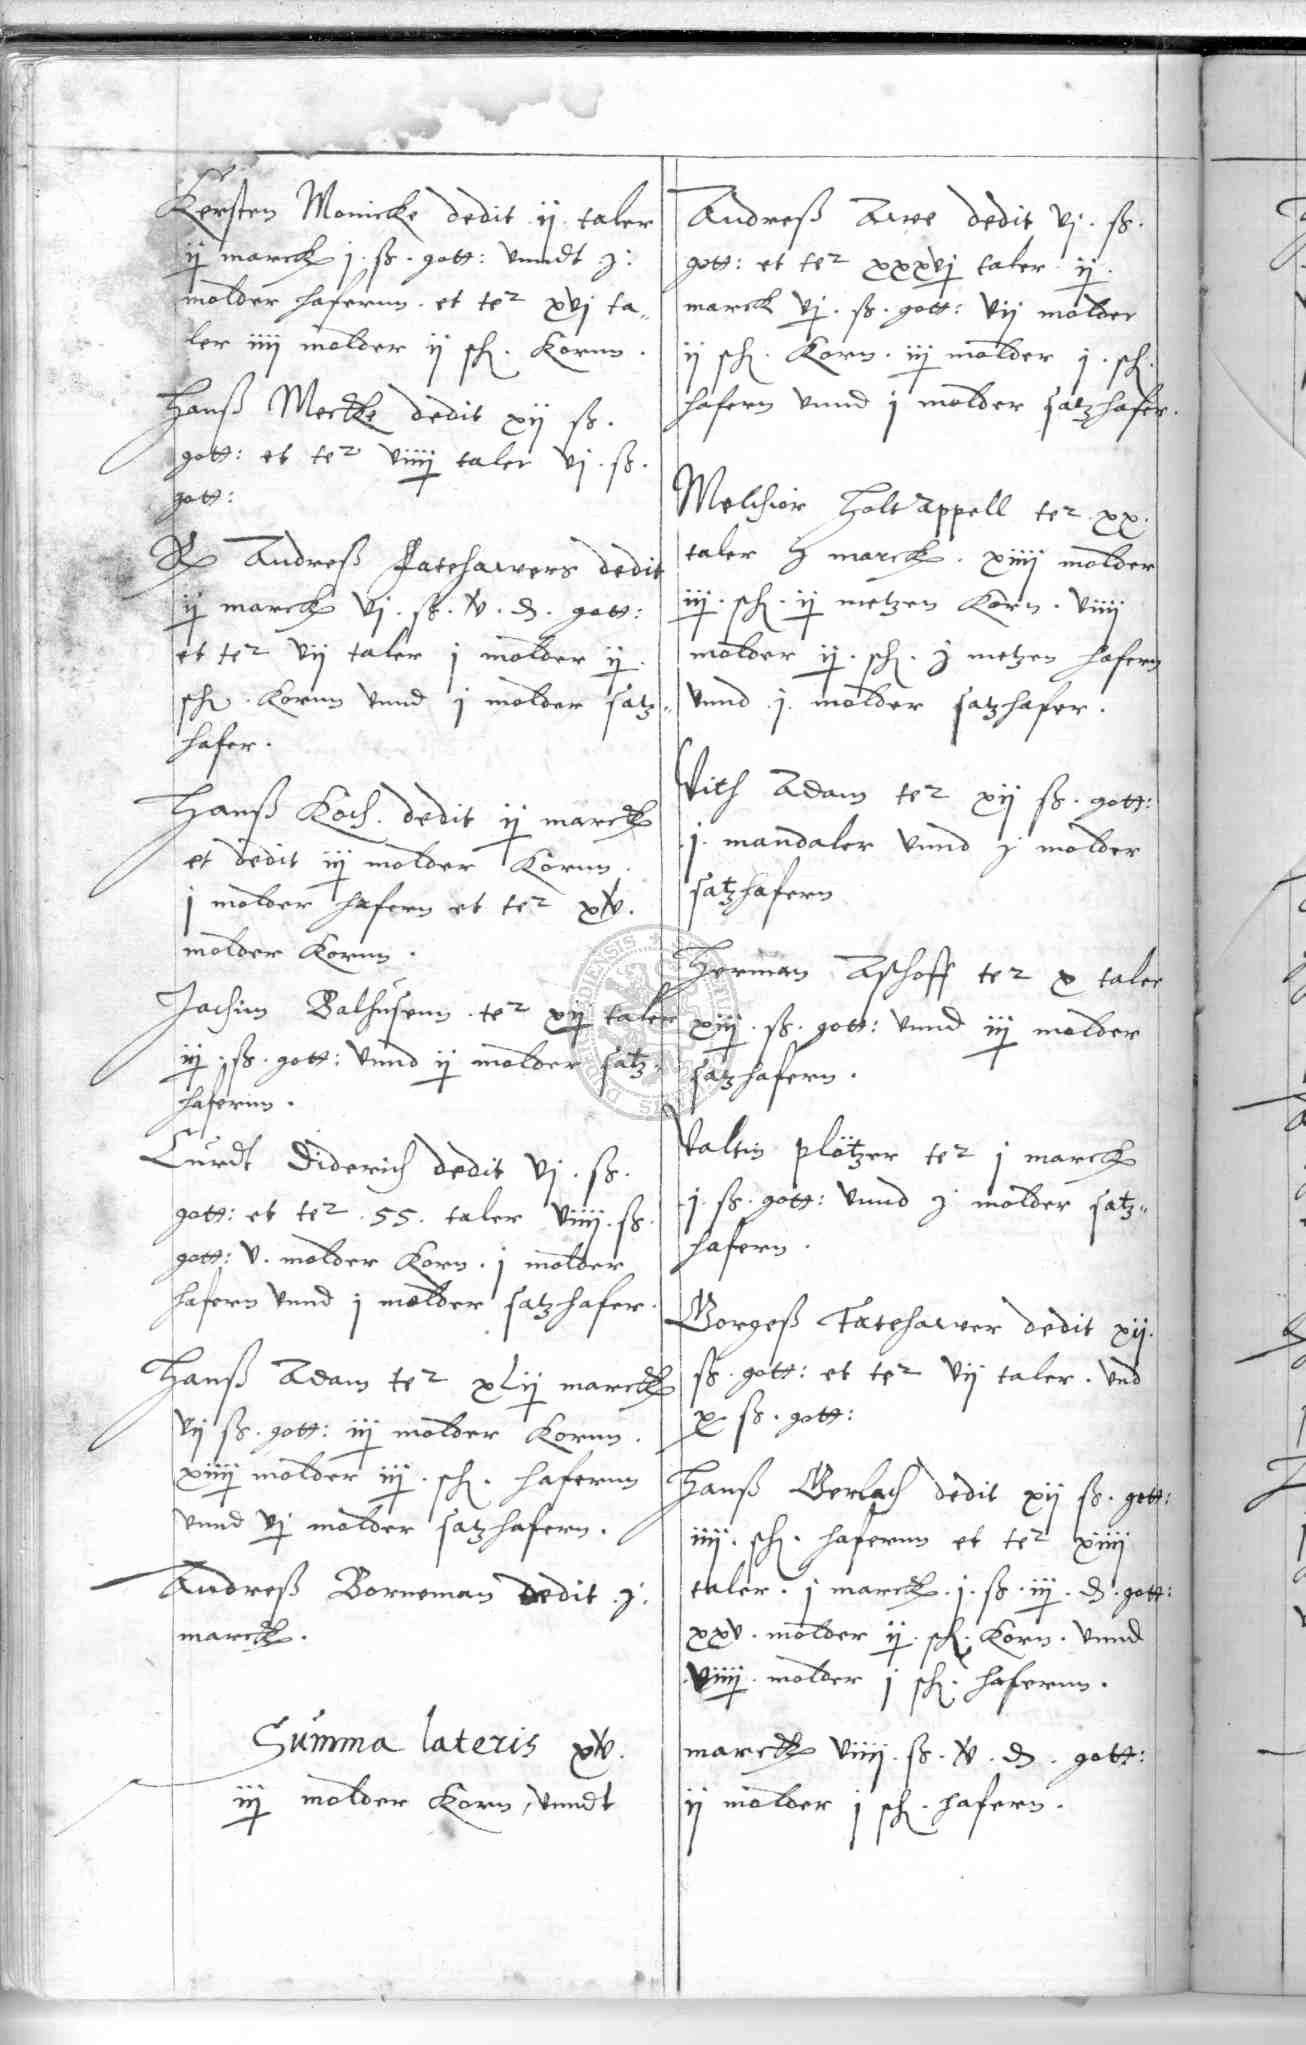 Kersten Monicke dedit ij. taler
ij marck j. ß. gott: vnndt j.
molder hafernn. et te2 xvj ta„
ler iiij molder ij sch. Kornn.
Hanß Mercke dedit xij ß.
gott: et te2 viiij taler vj. ß.
gott:
Andreß Fatehawers dedit
ij marck vj. ß. v. d. gott:
et te2 vij taler j molder ij.
sch. Kornn vnnd j molder satz„
hafer.
Hanß Koch. dedit ij marck
et dedit iij molder Kornn.
j molder hafern et te2 xv.
molder Kornn.
Jachim Balhusenn. te2 xij taler
iij. ß. gott: vnnd ij molder satz„
hafernn.
Curdt Diderich dedit vj. ß.
gott: et te2. 55. taler viiij. ß.
gott: v. molder Korn. j molder
hafern vnnd j molder satzhafer.
Hanß Adam te2 xLij marck
vij ß. gott: iij molder Kornn.
xiiij molder iij. sch. hafernn
vnnd vj molder satzhafern.
Andreß Borneman dedit j.
marck.
Summa lateris xv.
iij molder Korn, vnndt
Andreß Arve dedit vj. ß.
gott: et te2 xxxvj taler. ij.
marck vj. ß. gott: vij molder
ij sch. Korn. iij molder j. sch.
hafern vnnd j molder satzhafer.
Melchior Holtappell te2 xx.
taler j marck. xiiij molder
iij. sch. ij metzen Korn. viiij
molder ij. sch. j metzen hafern
vnnd j. molder satzhafer.
Vith Adam te2 xij ß. gott:
j. mandaler vnnd j molder
satzhafern
Herman Aschoff te2 x taler
xiij. ß. gott: vnnd iij molder
satzhafern.
Valtin plötzer te2 j marck
j. ß. gott: vnnd j molder satz„
hafern.
Gorgeß Fatehawer dedit xij.
ß. gott: et te2 vij taler. vnd
x. ß. gott:
Hanß Gerlach dedit xij ß. gott:
iiij. sch. hafernn et te2 xiiij
taler. j marck. j. ß. iij. d. gott:
xxv. molder ij. sch. Korn. vnnd
viiij. molder j sch. hafernn.
marck viiij. ß. v. d. gott:
ij molder j sch. hafern.